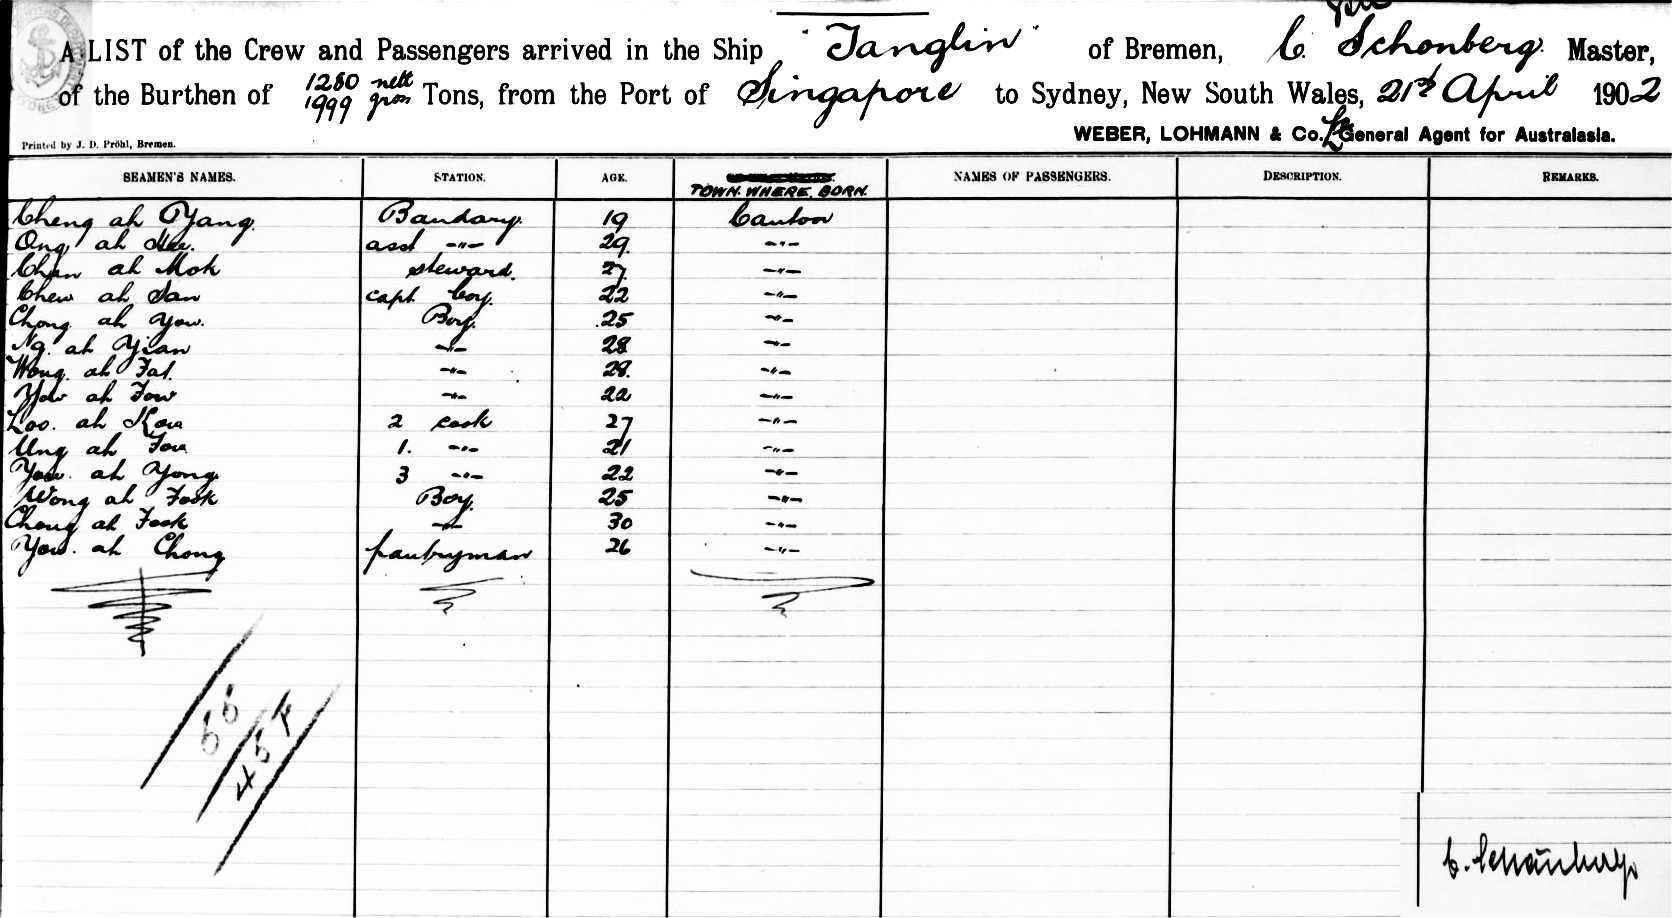 A LIST of the Crew and Passengers arrived in the Ship "Tanglin" of Bremen, C. Schonberg. Master,
of the Burthen of 1280 nett 1999 gross Tons, from the Port of Singapore to Sydney, New South Wales, 21st April 1902
WEBER, LOHMANN & Co. Ld General Agent for Australasia.
Printed by J. D. Pröhl, Bremen.
SEAMEN'S NAMES. STATION. AGE. TOWN WHERE BORN. NAMES OF PASSENGERS. DESCRIPTION. REMARKS.
Cheng ah Yang. Bandary. 19 Canton
Ong ah asst -"- 29. -"-
Chan ah Mok steward. 27 -"-
Chew ah San capt boy. 22 -"-
Chong ah Yow. Boy. 25 -"-
Ng. ah Yian -"- 28 -"-
Wong. ah Fat. -"- 28. -"-
Yow ah Fow -"- 22 -"-
Loo. ah Kow 2 cook 27 -"-
Ung ah Fow 1. -"- 21 -"-
Yow. ah Yong 3 -"- 22 -"-
Wong ah Fook Boy. 25 -"-
Chong ah Fook -"- 30 -"-
Yow. ah Chong pantryman 26 -"-
55
454
C. Schönberg